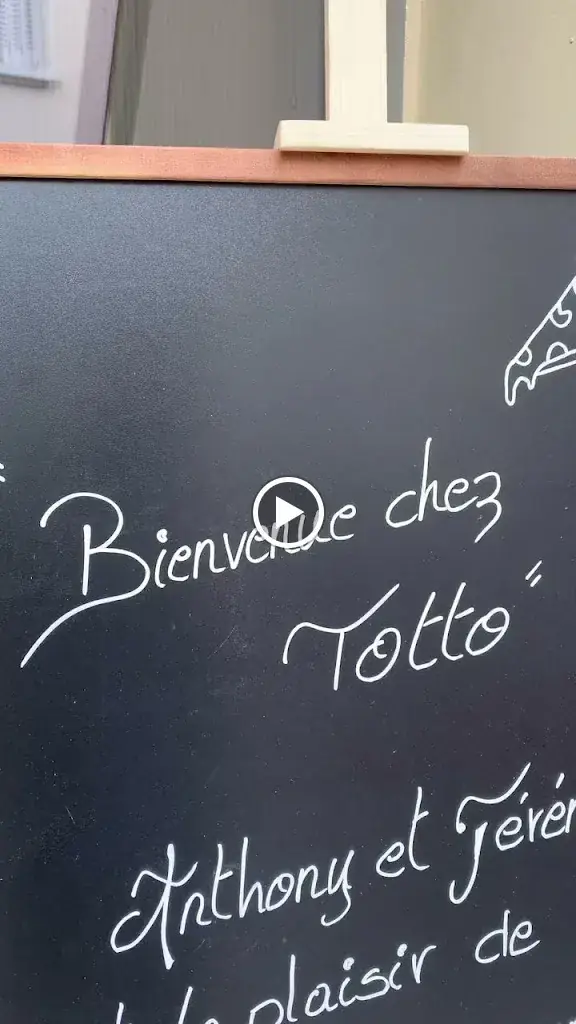 Bienvenue chez
Totto"
Anthony et
plaisir de